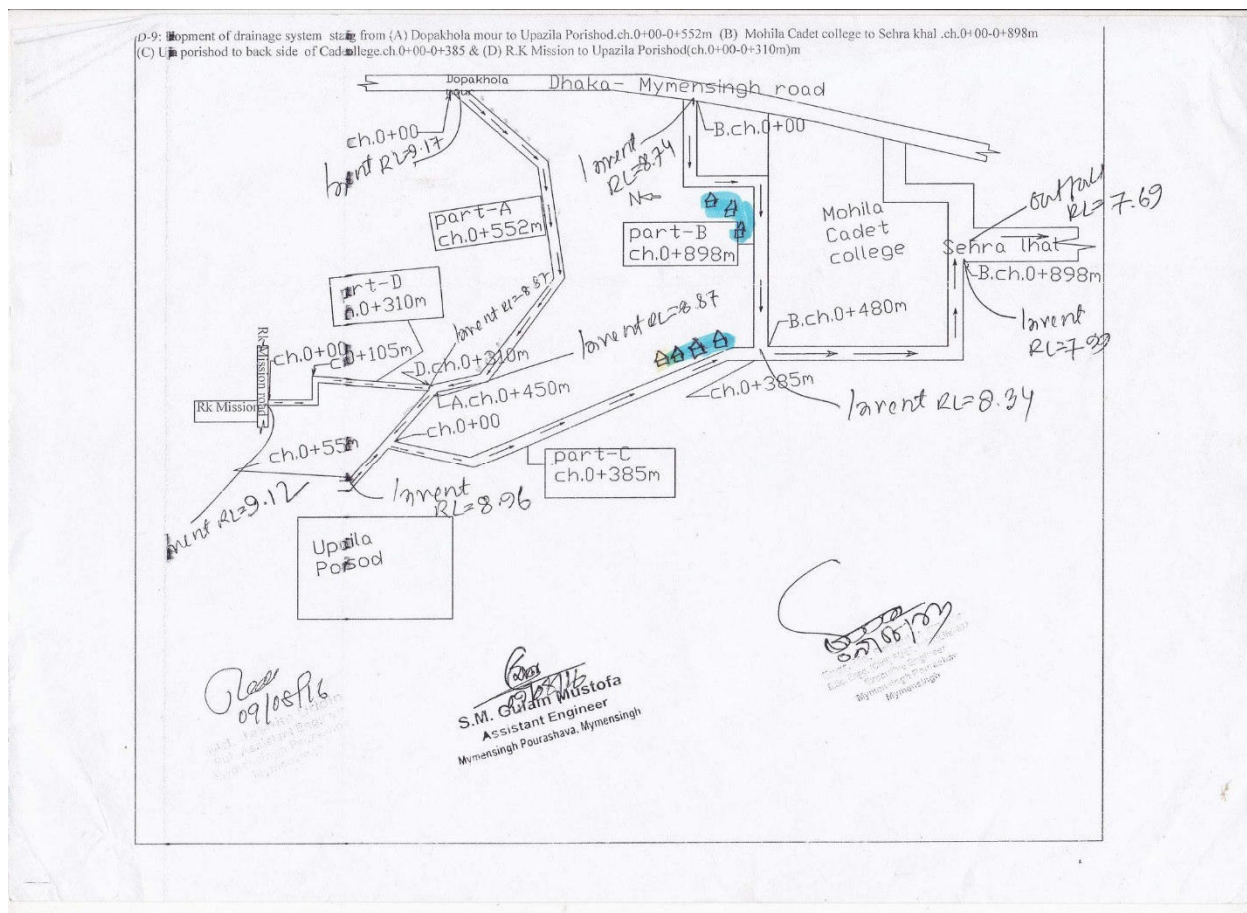 D-9: lopment of drainage system sta g from (A) Dopakhola mour to Upazila Porishod.ch.0+00-0+552m (B) Mohila Cadet college to Sehra khal .ch.0+00-0+898m
(C) U porishod to back side of Cad llege.ch.0+00-0+385 & (D) R.K Mission to Upazila Porishod(ch.0+00-0+310m)m
Dopakhola
Dhaka- Mymensingh road
ch.0+00
Invent RL=9.17
B.ch.0+00
Invent
RL=8.74
N
part-A
ch.0+552m
part-B
ch.0+898m
Mohila
Cadet
college
outfall
RL=7.69
Sehra lhat
B.ch.0+898m
Invent
RL=7.99
part-D
.0+310m
Invent RL=8.87
Invent RL=8.87
B.ch.0+480m
Rk Mission road
ch.0+00
0+105m
D.ch.0+310m
A.ch.0+450m
ch.0+00
ch.0+385m
Invent RL=8.34
Rk Mission
ch.0+55
part-C
ch.0+385m
Invent
RL=8.96
RL=9.12
Up ila
Po sod
09/08/16
S.M. Gulam Mustofa
Assistant Engineer
Mymensingh Pourashava, Mymensingh
Executive Engineer
Mymensingh Pourashava
Mymensingh